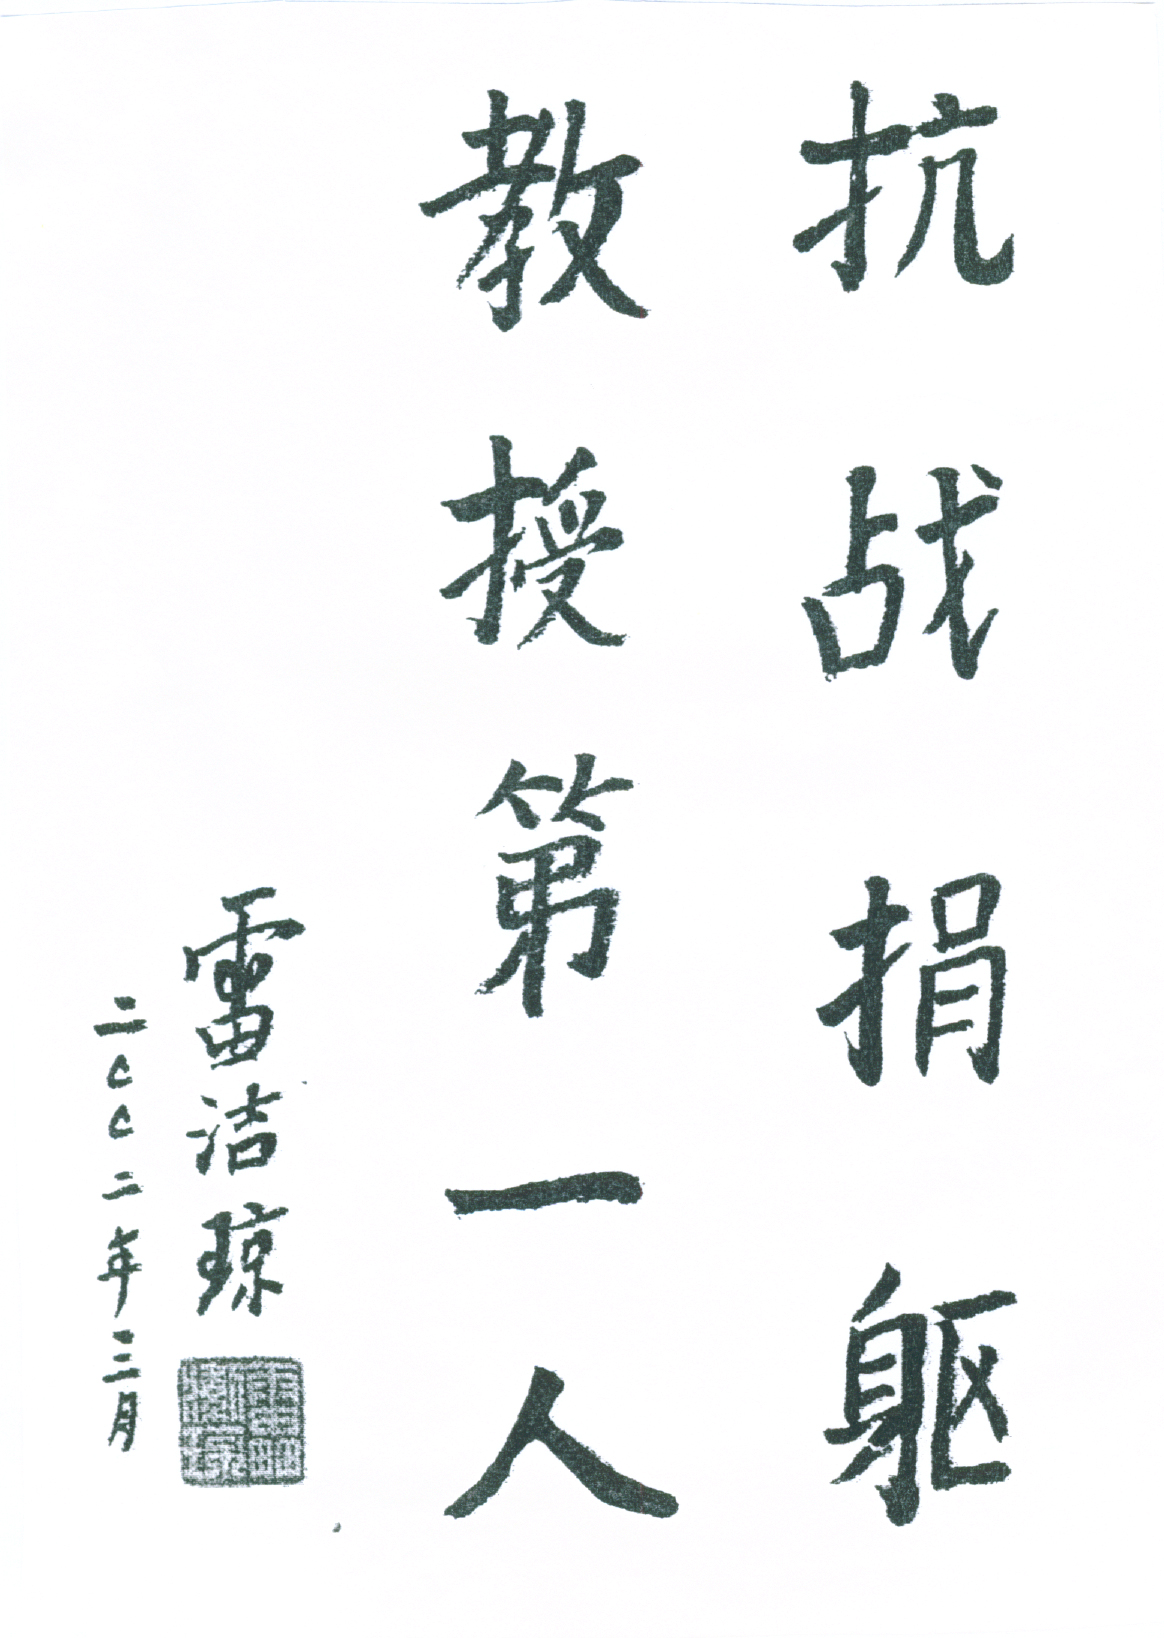 抗战捐躯
教授第一人
雷洁琼
二００二年三月